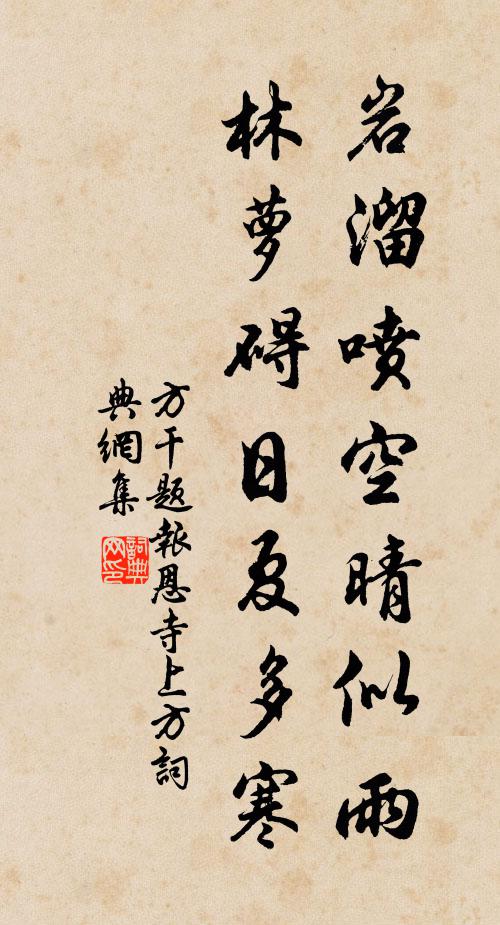 岩溜喷空晴似雨
林萝碍日夏多寒
方干题报恩寺上方词
典網集
詞典网印